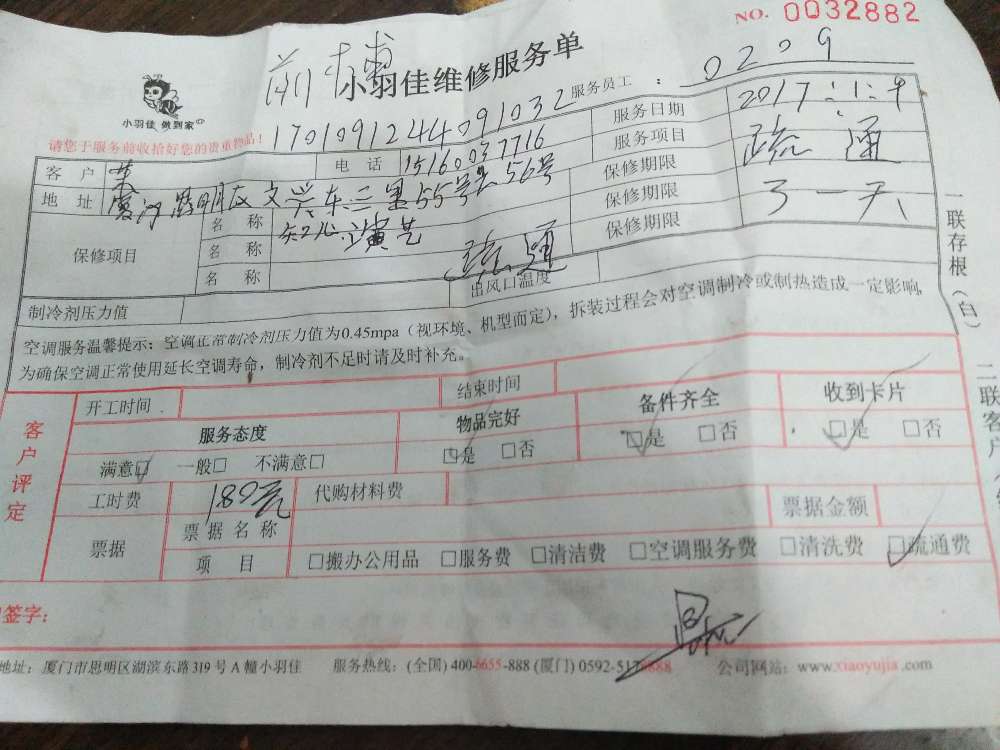 NO. 0032882
小羽佳维修服务单
小羽佳 做到家
服务员工 : 0209
请您于服务前收拾好您的贵重物品! 1701091244091032 服务日期 2017:1:9
客户 电话 15160037716 服务项目 疏通
地址 厦门思明区文兴东三里55号之56号 保修期限 一天
保修项目 名称 保修期限
名称 疏通 保修期限
名称
制冷剂压力值 出风口温度
空调服务温馨提示:空调正常制冷剂压力值为0.45mpa(视环境、机型而定),拆装过程会对空调制冷或制热造成一定影响,
为确保空调正常使用延长空调寿命,制冷剂不足时请及时补充。
一联存根(白) 二联客户
客户评定
开工时间 结束时间
服务态度 物品完好 备件齐全 收到卡片
满意□ 一般□ 不满意□ □是 □否 □是 □否 □是 □否
工时费 180元 代购材料费
票据 票据名称 票据金额
项目 □搬办公用品 □服务费 □清洁费 □空调服务费 □清洗费 □疏通费
签字:
地址:厦门市思明区湖滨东路319号A幢小羽佳 服务热线:(全国) 400-6655-888 (厦门) 0592-5178888 公司网站:www.xiaoyujia.com